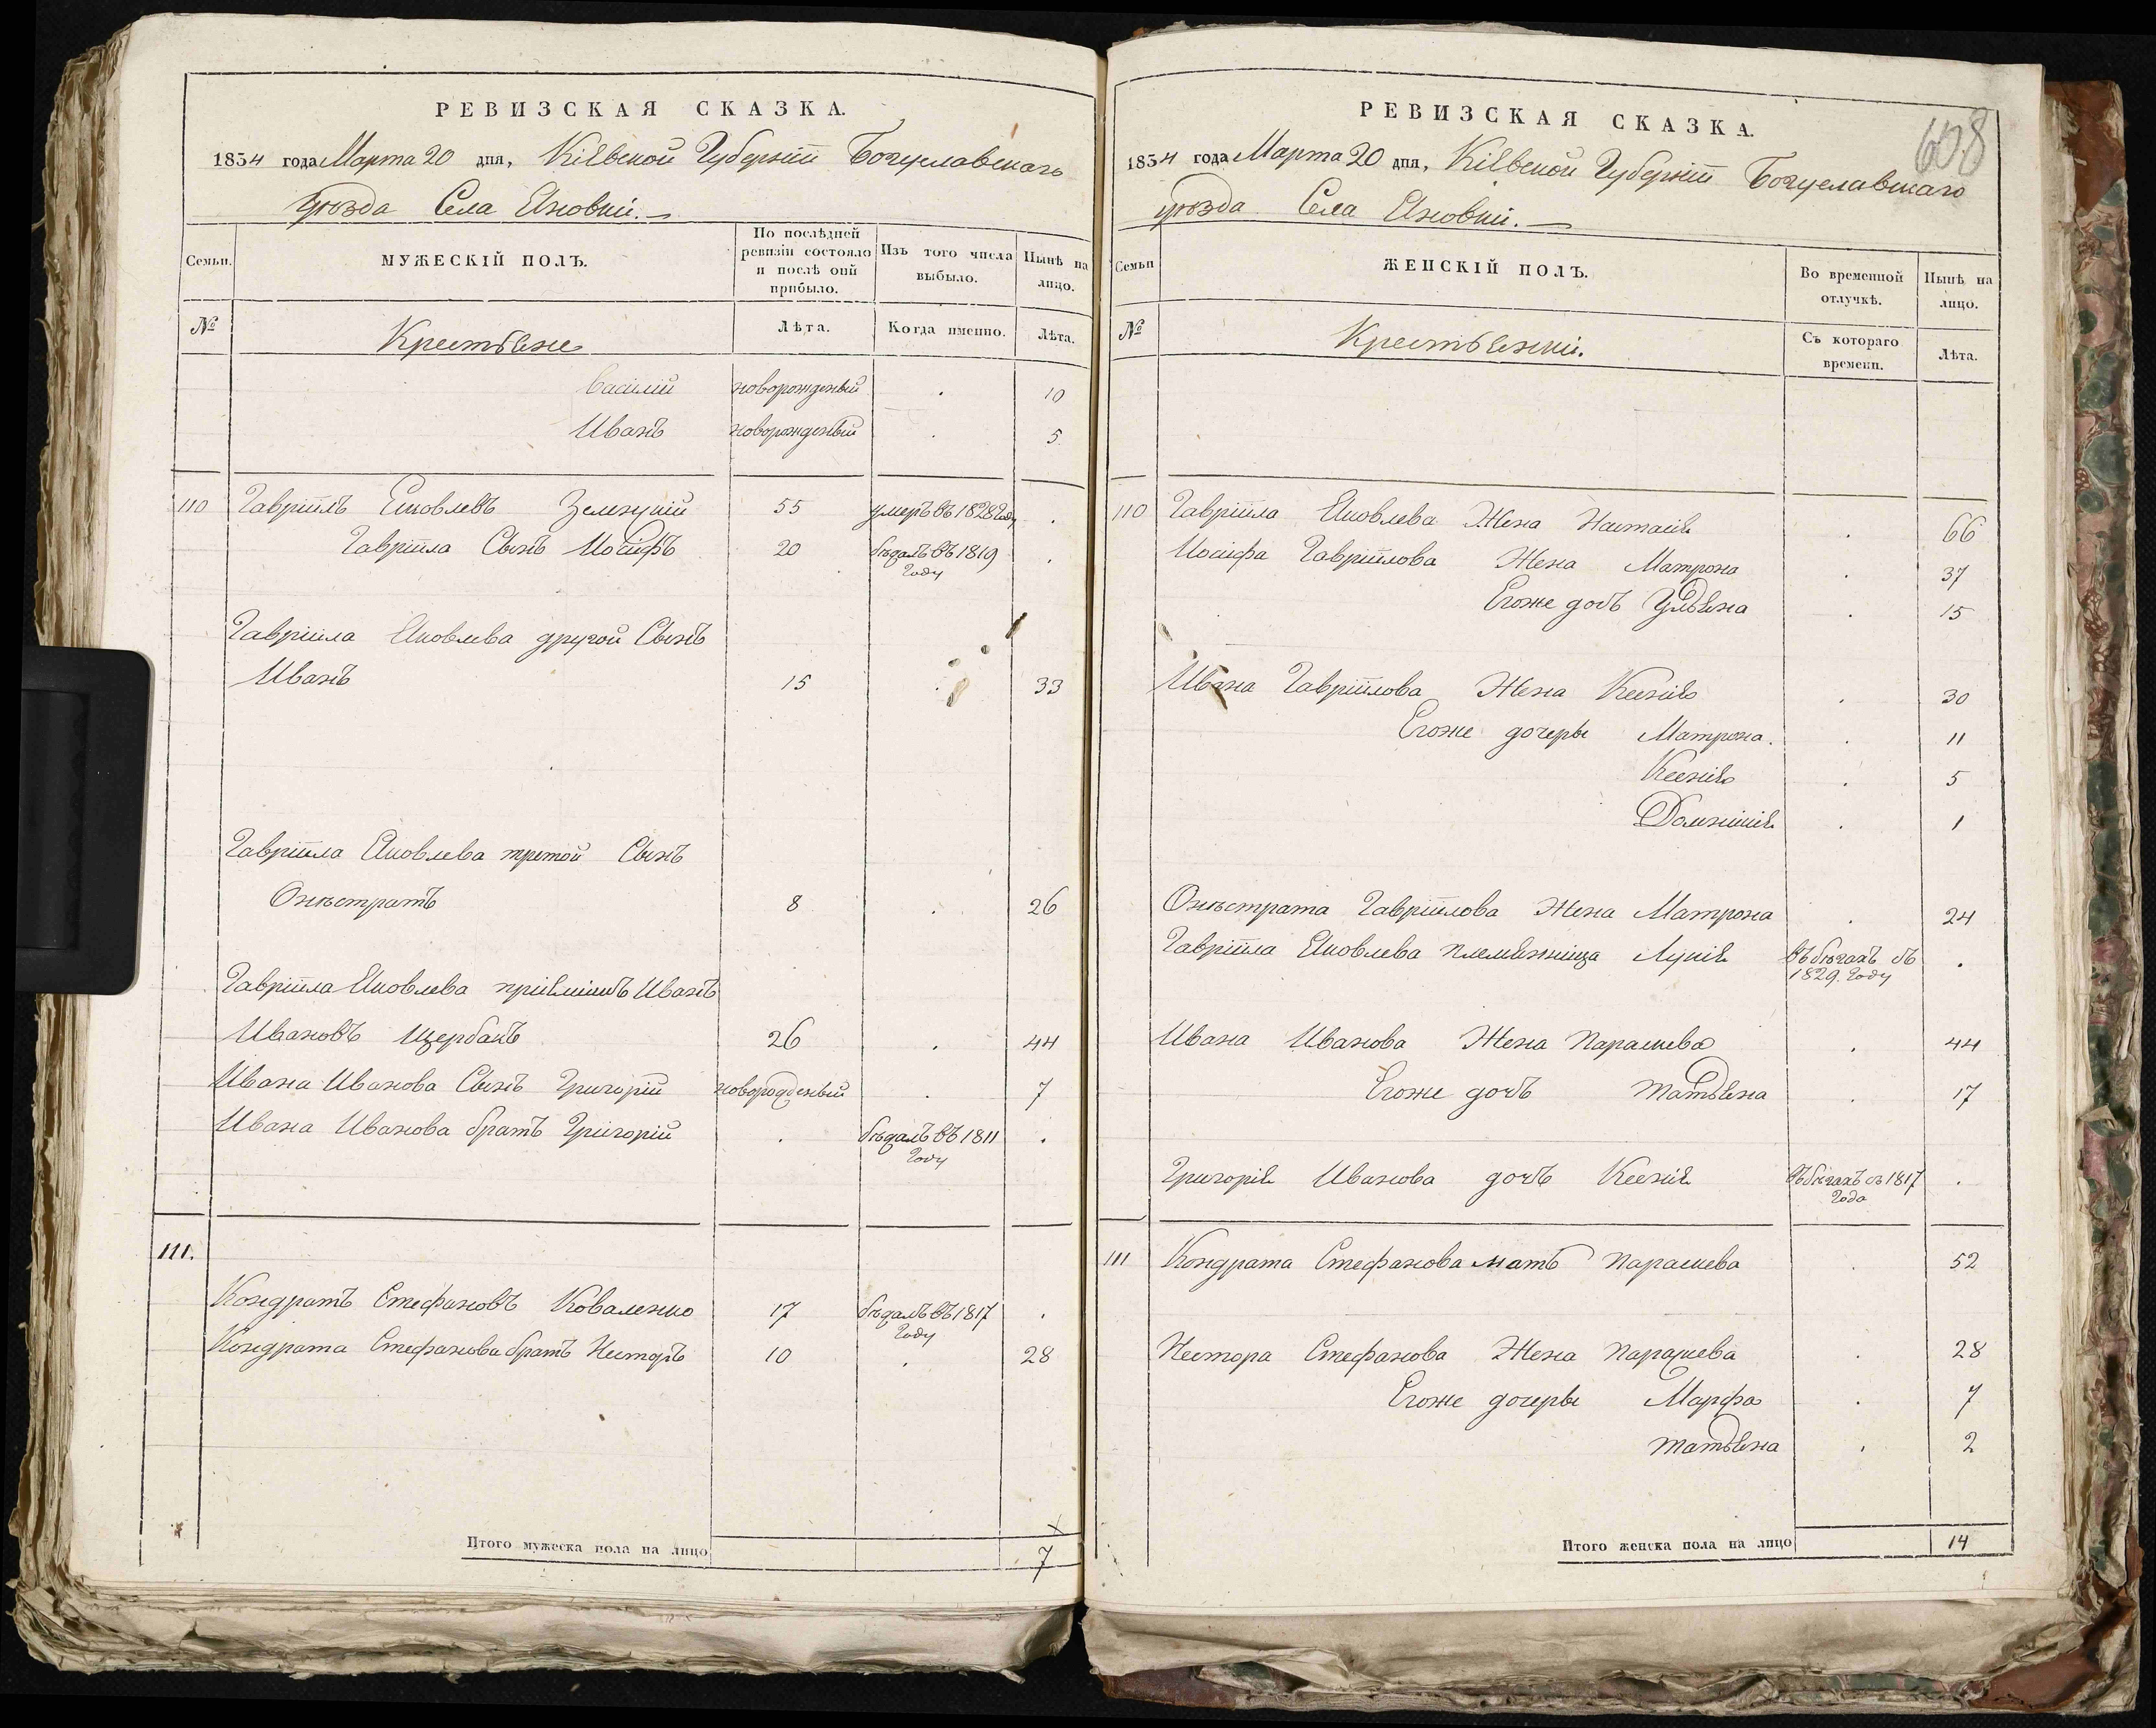 РЕВИЗСКАЯ СКАЗКА.
1834 года Марта 20 дня, Кіевской Губерніи Богуславскаго
уѣзда Села Яновки.
Семьи.
МУЖЕСКІЙ ПОЛЪ.
По послѣдней ревизіи состояло и послѣ оной прибыло.
Изъ того числа выбыло.
Нынѣ на лицо.
№
Крестьяне
Лѣта.
Когда именно.
Лѣта.
Василій новорожденый . 10
Иванъ новорожденый . 5
110 Гавріилъ Яковлевъ Зеленскій 55 умеръ въ 1828 Году .
Гавріила Сынъ Иосифъ 20 бѣжалъ въ 1819 Году .
Гавріила Яковлева другой Сынъ
Иванъ 15 . 33
Гавріила Яковлева третой Сынъ
Онѣстратъ 8 . 26
Гавріила Яковлева пріемышъ Иванъ
Ивановъ Щербакъ 26 . 44
Ивана Иванова Сынъ Григорій новорожденый . 7
Ивана Иванова братъ Григорій . бѣжалъ въ 1811 Году .
111.
Кондратъ Стефановъ Коваленко 17 бѣжалъ въ 1817 Году .
Кондрата Стефанова братъ Несторъ 10 . 28
Итого мужеска пола на лицо 7
608
РЕВИЗСКАЯ СКАЗКА.
1834 года Марта 20 дня, Кіевской Губерніи Богуславскаго
уѣзда Села Яновки.
Семьи
ЖЕНСКІЙ ПОЛЪ.
Во временной отлучкѣ.
Нынѣ на лицо.
№
Крестьянки.
Съ котораго времени.
Лѣта.
110 Гавріила Яковлева Жена Настасія . 66
Иосифа Гавріилова Жена Матрона . 37
Егоже дочь Ульяна . 15
Ивана Гавріилова Жена Ксенія . 30
Егоже дочеры Матрона. . 11
Ксенія . 5
Домникія . 1
Онѣстрата Гавріилова Жена Матрона . 24
Гавріила Яковлева племянница Лукія въ бѣгахъ съ 1829. Году .
Ивана Иванова Жена Параскева . 44
Егоже дочь Татьяна . 17
Григорія Иванова дочь Ксенія въ бѣгахъ съ 1817 Года .
111 Кондрата Стефанова мать Параскева . 52
Нестора Стефанова Жена Параскева . 28
Егоже дочеры Марфа . 7
Татьяна . 2
Итого женска пола на лицо 14